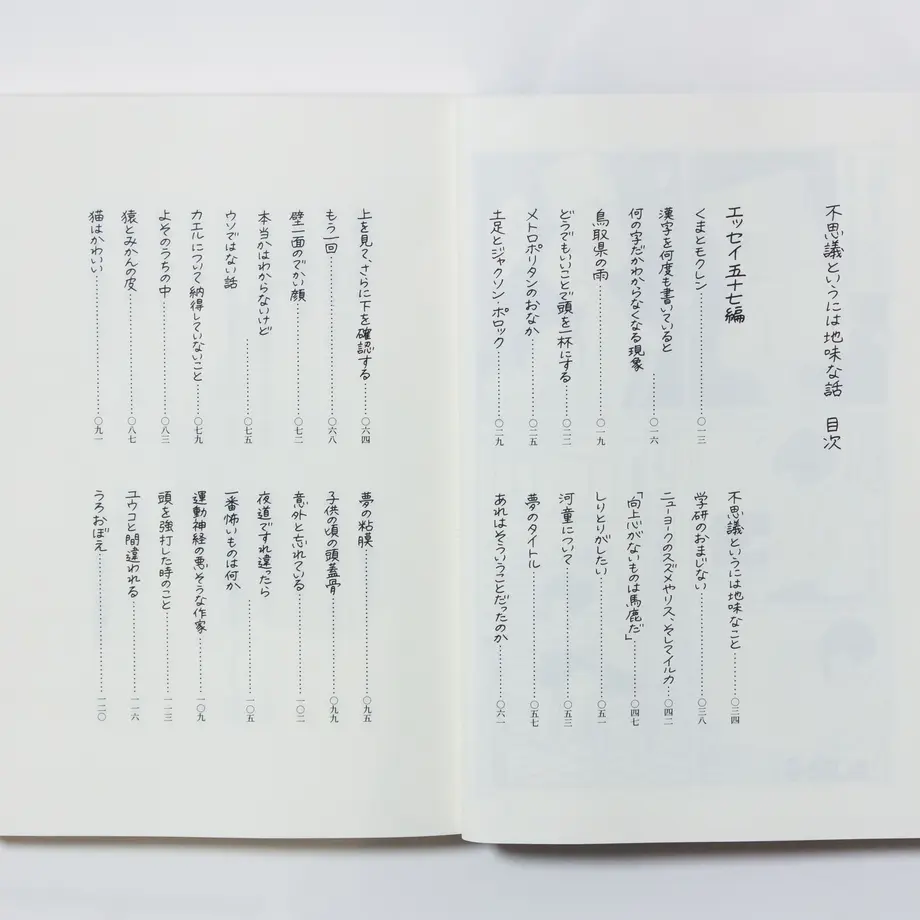 不思議というには地味な話　目次
エッセイ五十七編
くまとモクレン……○一三
漢字を何度も書いていると
何の字だかわからなくなる現象……○一六
鳥取県の雨……○一九
どうでもいいことで頭を一杯にする……○二二
メトロポリタンのおなか……○二五
土足とジャクソン・ポロック……○二九
不思議というには地味なこと……○三四
学研のおまじない……○三八
ニューヨークのスズメやリス、そしてイルカ……○四二
「向上心がないものは馬鹿だ」……○四七
しりとりがしたい……○五一
河童について……○五三
夢のタイトル……○五七
あれはそういうことだったのか……○六一
上を見て、さらに下を確認する……○六四
もう一回……○六八
壁一面のでかい顔……○七二
本当かはわからないけど
ウソではない話……○七五
カエルについて納得していないこと……○七九
よそのうちの中……○八三
猿とみかんの皮……○八七
猫はかわいい……○九一
夢の粘膜……○九五
子供の頃の頭蓋骨……○九九
意外と忘れている……一○二
夜道ですれ違ったら
一番怖いものは何か……一○五
運動神経の悪そうな作家……一○九
頭を強打した時のこと……一一三
ユウコと間違われる……一一六
うろおぼえ……一二○